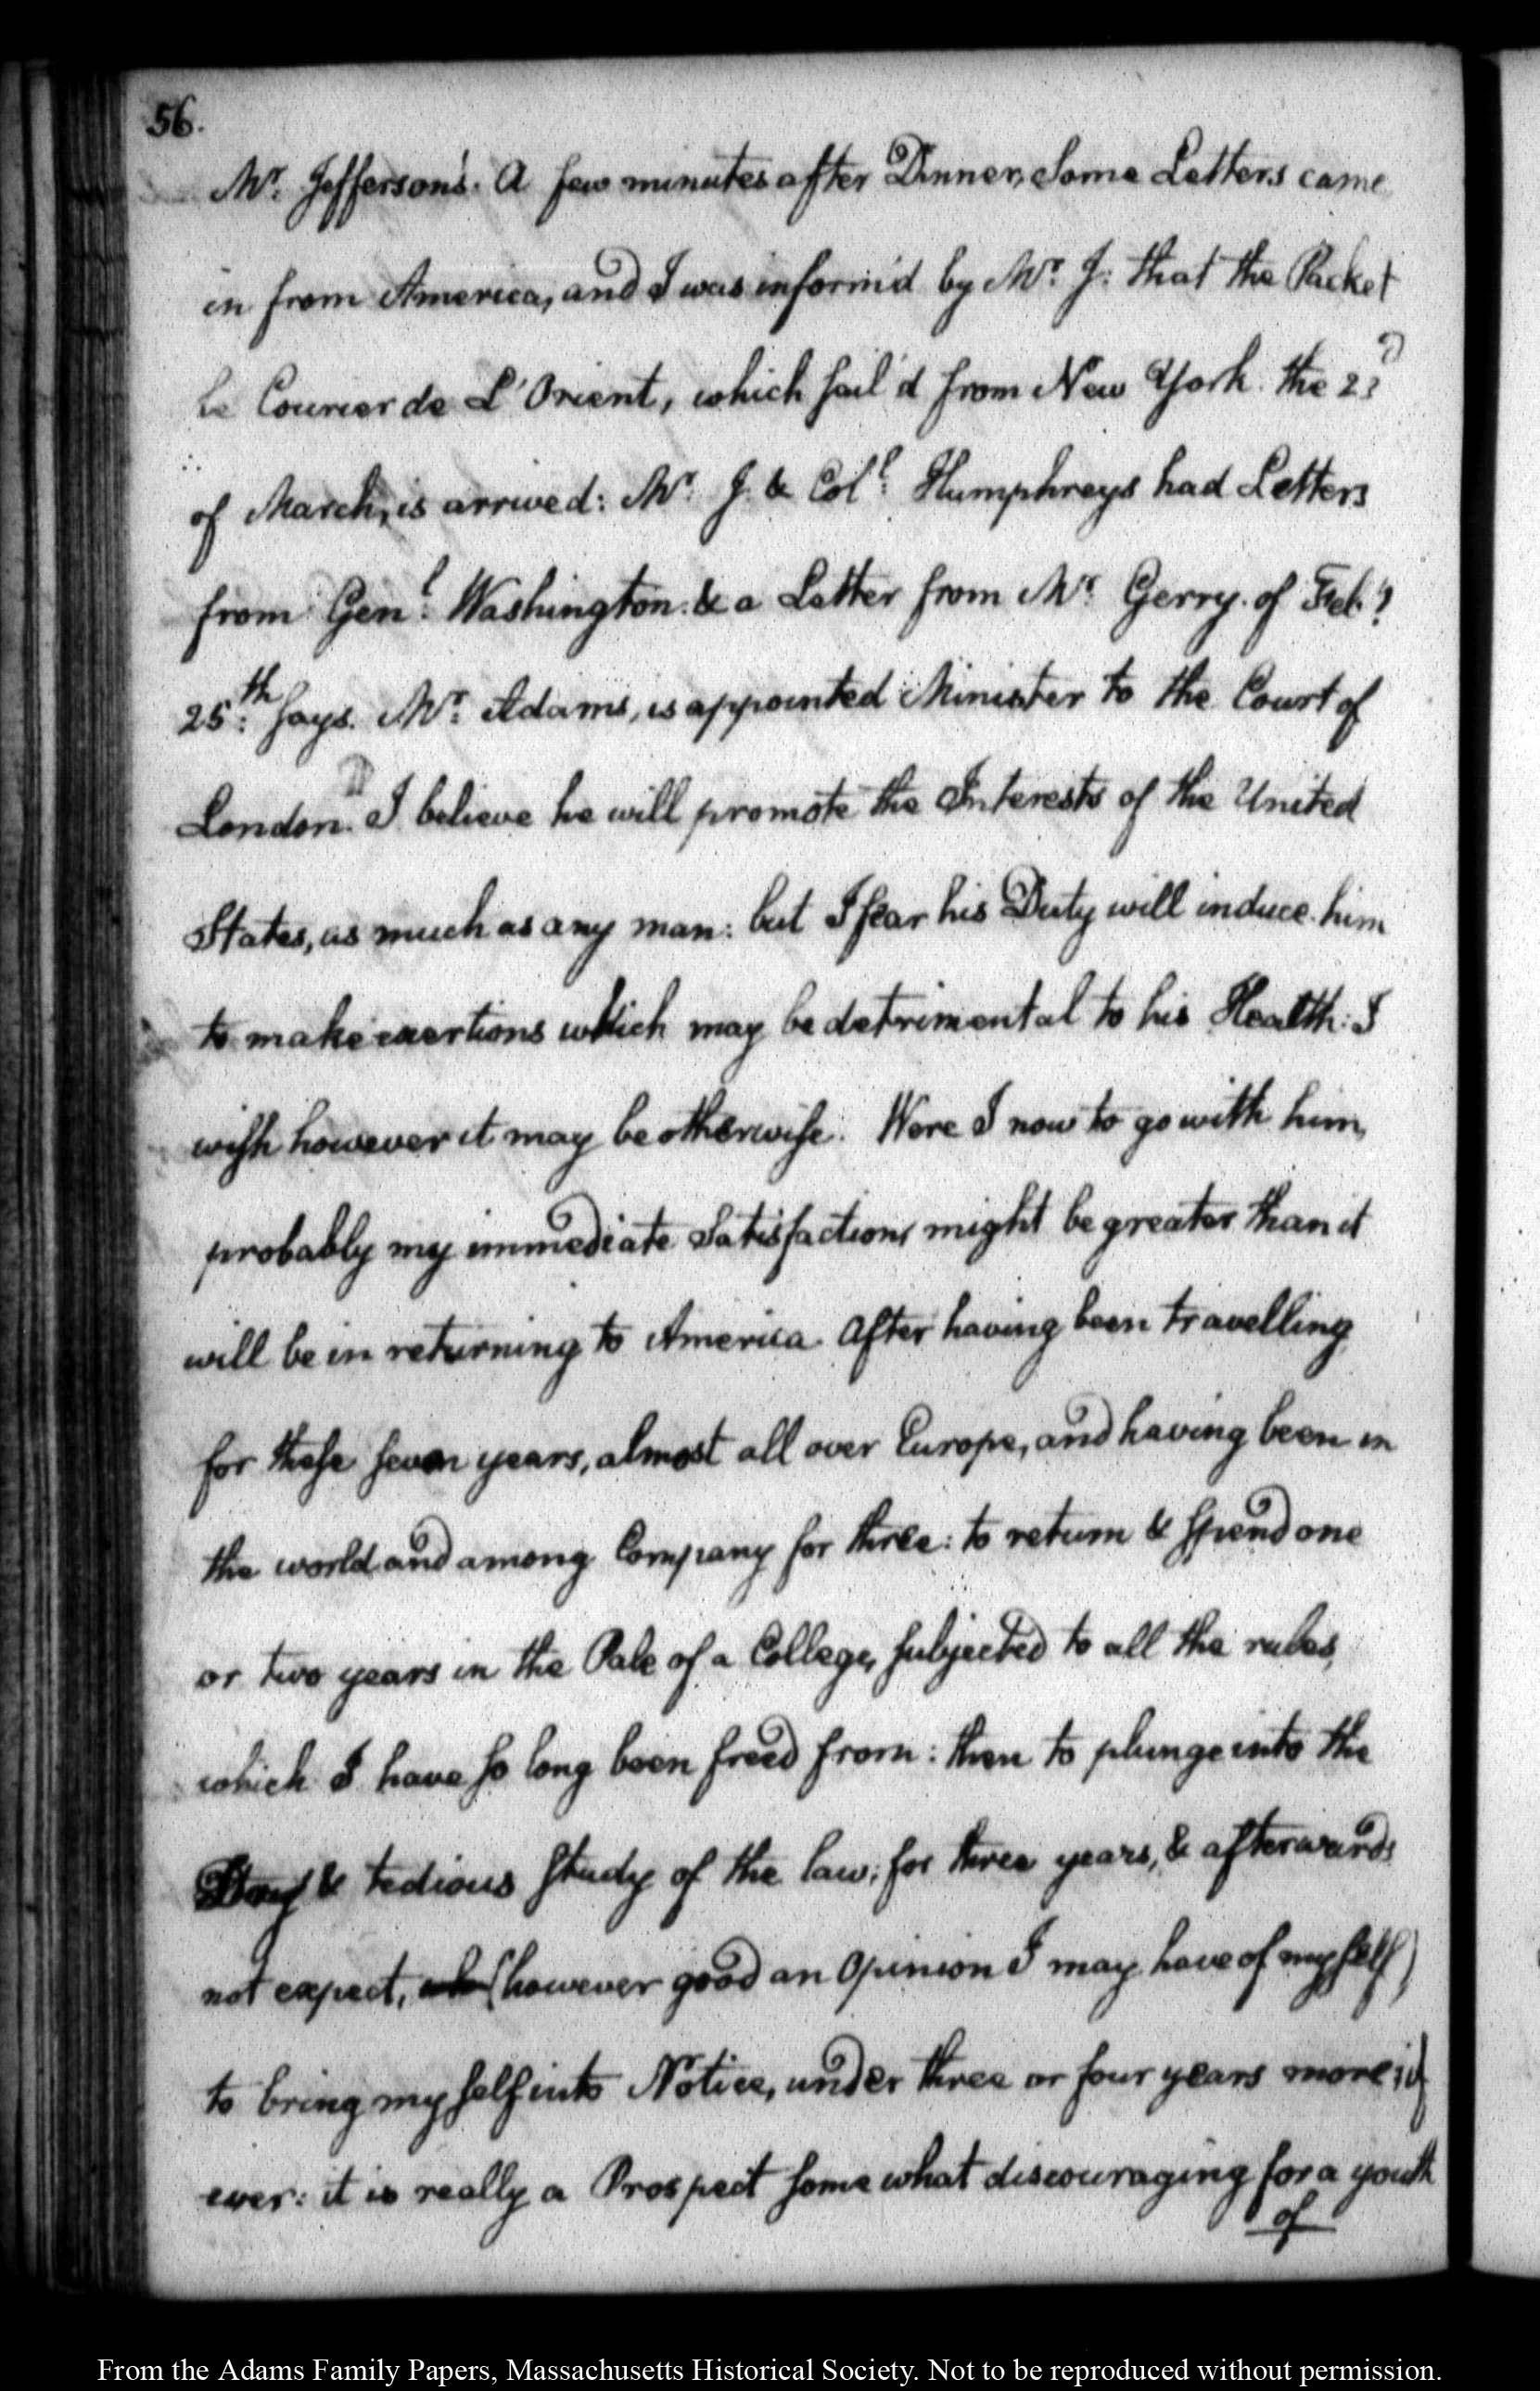 56.
Mr. Jefferson's. A few minutes after Dinner, Some Letters came
in from America, and I was inform'd by Mr. J: that the Packet
le Courier de L'Orient, which sail'd from New York the 23d
of March, is arrived: Mr. J. & Coll. Humphreys had Letters
from Genl. Washington. & a Letter from Mr. Gerry. of Feby.
25th: says. Mr. Adams, is appointed Minister to the Court of
London. I believe he will promote the Interests of the United
States, as much as any man: but I fear his Duty will induce him
to make exertions which may be detrimental to his Health: I
wish however it may be otherwise. Were I now to go with him,
probably my immediate Satisfaction, might be greater than it
will be in returning to America. After having been travelling
for these seven years, almost all over Europe, and having been in
the world and among Company for three: to return & spend one
or two years in the Pale of a College, subjected to all the rules,
which I have so long been freed from: then to plunge into the
Dry & tedious study of the law, for three years, & afterwards
not expect, (however good an Opinion I may have of myself)
to bring myself into Notice, under three or four years more; if
ever: it is really a Prospect somewhat discouraging for a youth
of
From the Adams Family Papers, Massachusetts Historical Society. Not to be reproduced without permission.